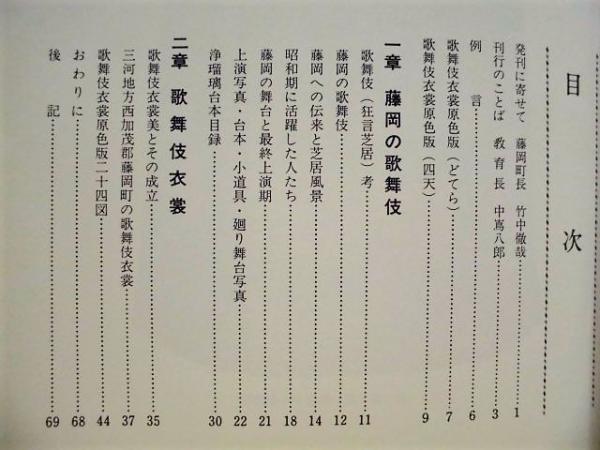 目次
発刊に寄せて 藤岡町長 竹中徹哉……1
刊行のことば 教育長 中嶌八郎……3
例言……6
歌舞伎衣裳原色版（どてら）……7
歌舞伎衣裳原色版（四天）……9
一章 藤岡の歌舞伎
歌舞伎（狂言芝居）考……11
藤岡の歌舞伎……12
藤岡への伝来と芝居風景……14
昭和期に活躍した人たち……18
藤岡の舞台と最終上演期……21
上演写真・台本・小道具・廻り舞台写真……22
浄瑠璃台本目録……30
二章 歌舞伎衣裳
歌舞伎衣裳美とその成立……35
三河地方西加茂郡藤岡町の歌舞伎衣裳……37
歌舞伎衣裳原色版二十四図……44
おわりに……68
後記……69